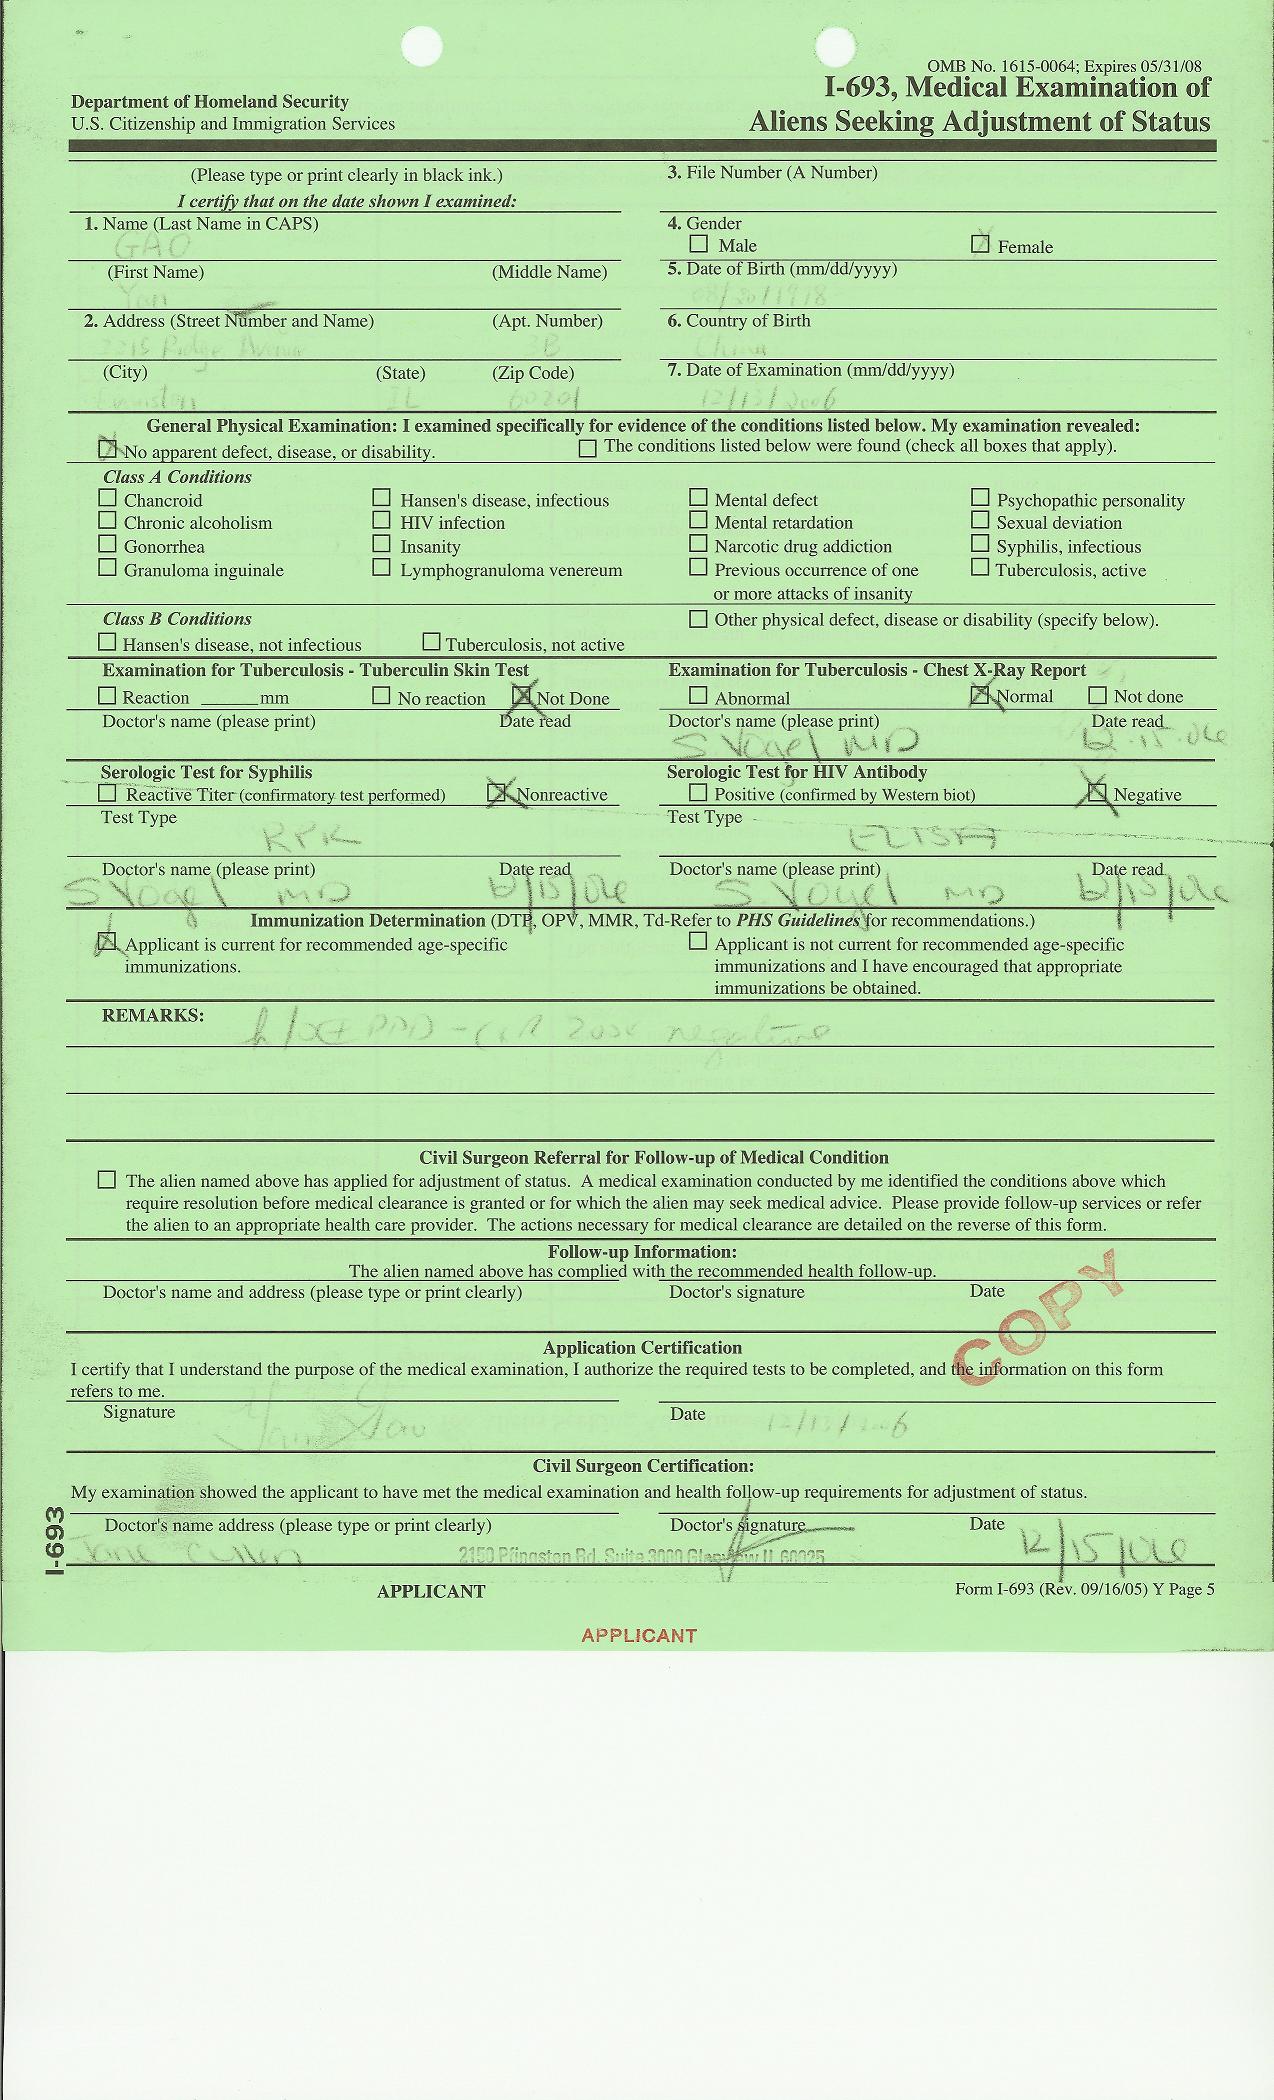 OMB No. 1615-0064; Expires 05/31/08
Department of Homeland Security
U.S. Citizenship and Immigration Services
I-693, Medical Examination of
Aliens Seeking Adjustment of Status
(Please type or print clearly in black ink.)
I certify that on the date shown I examined:
3. File Number (A Number)
1. Name (Last Name in CAPS)
GAO
4. Gender
Male
Female
(First Name) (Middle Name)
Yan
5. Date of Birth (mm/dd/yyyy)
2. Address (Street Number and Name) (Apt. Number)
Ridge Avenue 3B
6. Country of Birth
China
(City) (State) (Zip Code)
IL 60201
7. Date of Examination (mm/dd/yyyy)
12/13/2006
General Physical Examination: I examined specifically for evidence of the conditions listed below. My examination revealed:
No apparent defect, disease, or disability.
The conditions listed below were found (check all boxes that apply).
Class A Conditions
Chancroid Hansen's disease, infectious Mental defect Psychopathic personality
Chronic alcoholism HIV infection Mental retardation Sexual deviation
Gonorrhea Insanity Narcotic drug addiction Syphilis, infectious
Granuloma inguinale Lymphogranuloma venereum Previous occurrence of one Tuberculosis, active
or more attacks of insanity
Class B Conditions
Other physical defect, disease or disability (specify below).
Hansen's disease, not infectious Tuberculosis, not active
Examination for Tuberculosis - Tuberculin Skin Test
Reaction ______mm No reaction Not Done
Doctor's name (please print) Date read
Examination for Tuberculosis - Chest X-Ray Report
Abnormal Normal Not done
Doctor's name (please print) Date read
S. Vogel MD 12.15.06
Serologic Test for Syphilis
Reactive Titer (confirmatory test performed) Nonreactive
Test Type
RPR
Doctor's name (please print) Date read
S Vogel MD 12/15/06
Serologic Test for HIV Antibody
Positive (confirmed by Western biot) Negative
Test Type
ELISA
Doctor's name (please print) Date read
S. Vogel MD 12/15/06
Immunization Determination (DTP, OPV, MMR, Td-Refer to PHS Guidelines for recommendations.)
Applicant is current for recommended age-specific
immunizations.
Applicant is not current for recommended age-specific
immunizations and I have encouraged that appropriate
immunizations be obtained.
REMARKS:
PPD negative
Civil Surgeon Referral for Follow-up of Medical Condition
The alien named above has applied for adjustment of status. A medical examination conducted by me identified the conditions above which
require resolution before medical clearance is granted or for which the alien may seek medical advice. Please provide follow-up services or refer
the alien to an appropriate health care provider. The actions necessary for medical clearance are detailed on the reverse of this form.
Follow-up Information:
The alien named above has complied with the recommended health follow-up.
Doctor's name and address (please type or print clearly) Doctor's signature Date
COPY
Application Certification
I certify that I understand the purpose of the medical examination, I authorize the required tests to be completed, and the information on this form
refers to me.
Signature Date
Yan Gao 12/13/2006
Civil Surgeon Certification:
My examination showed the applicant to have met the medical examination and health follow-up requirements for adjustment of status.
Doctor's name address (please type or print clearly) Doctor's signature Date
Jane Cullen 2150 Pfingsten Rd. Suite 3000 Glenview IL 60025 12/15/06
I-693
APPLICANT
Form I-693 (Rev. 09/16/05) Y Page 5
APPLICANT